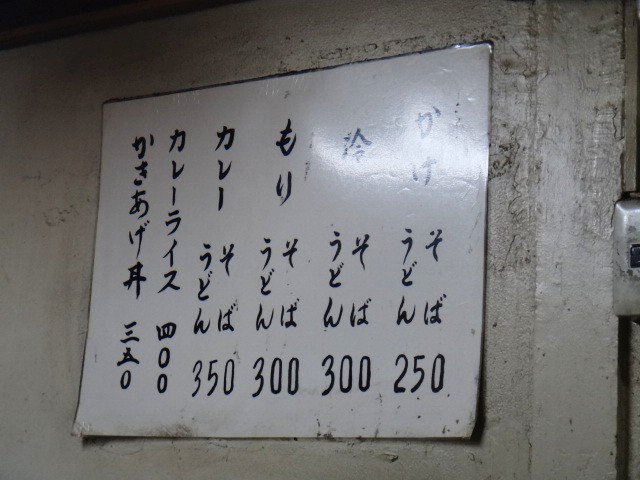 かけ そば うどん 250
冷 そば うどん 300
もり そば うどん 300
カレー そば うどん 350
カレーライス 四〇〇
かきあげ丼 三五〇